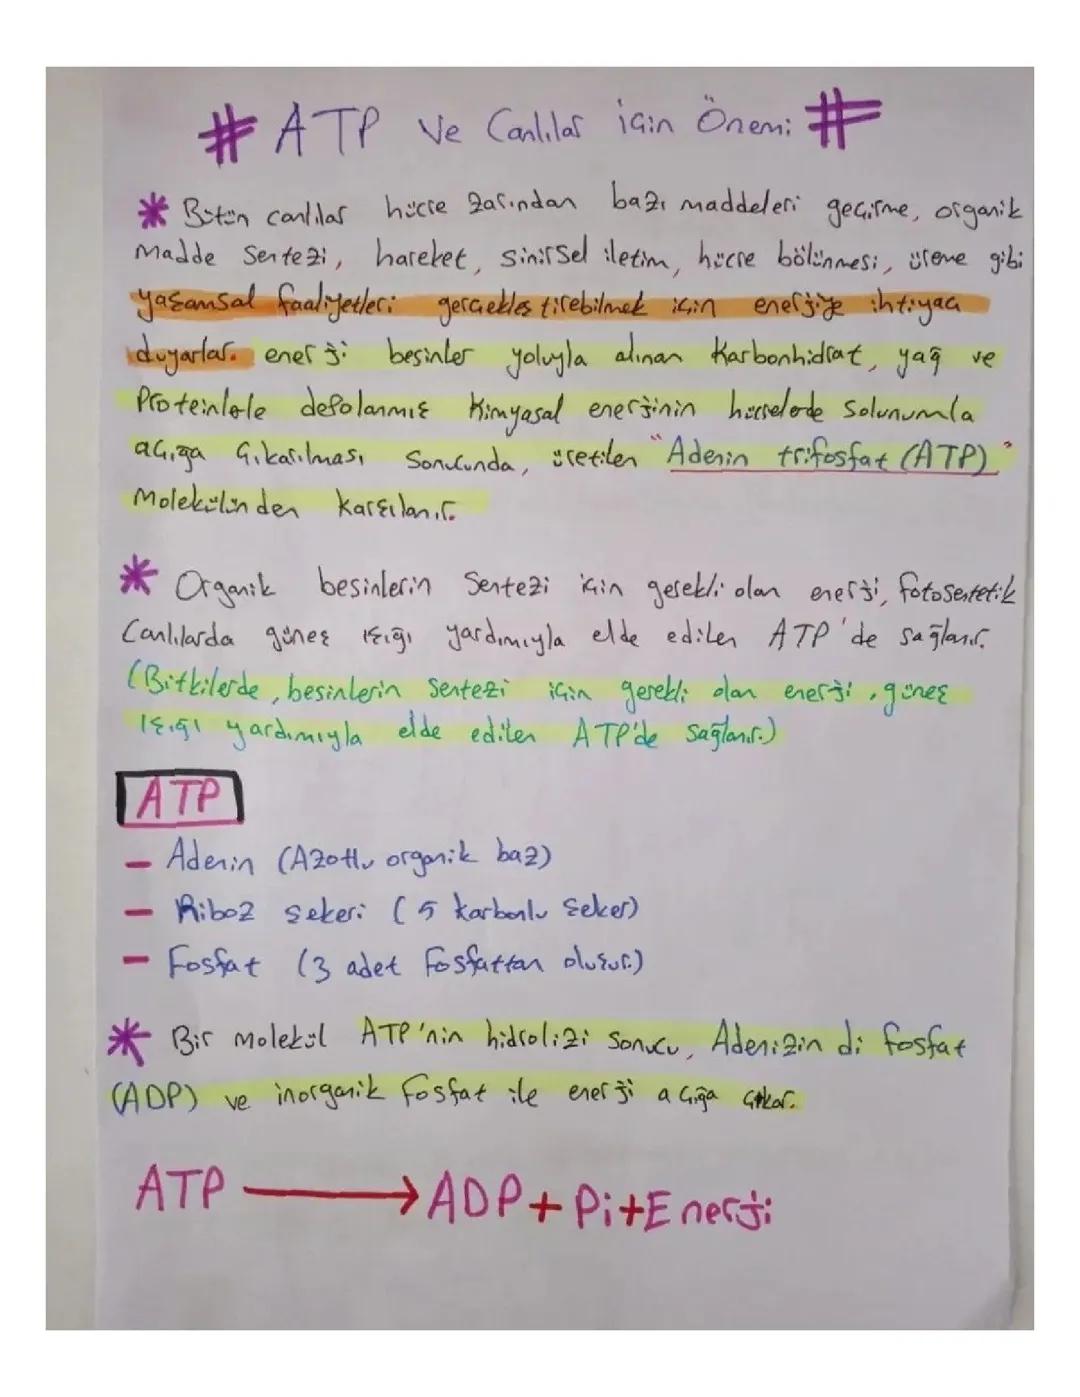 # ATP ve Canlılar için Önemi #
* Bütün canlılar hücre zarından bazı maddeleri geçirme, organik
madde sentezi, hareket, sinirsel iletim, hücre bölünmesi, üreme gibi
yaşamsal faaliyetleri gerçekleştirebilmek için enerjiye ihtiyaç
duyarlar. enerji besinler yoluyla alınan Karbonhidrat, yağ ve
Proteinlerle depolanmış Kimyasal enerjinin hücrelerde Solunumla
açığa çıkarılması Sonucunda, üretilen "Adenin trifosfat (ATP)"
Molekülünden karşılanır.
* Organik besinlerin Sentezi için gerekli olan enerji, fotosentetik
Canlılarda güneş ışığı yardımıyla elde edilen ATP'de sağlanır.
(Bitkilerde, besinlerin Sentezi için gerekli olan enerji, güneş
ışığı yardımıyla elde edilen ATP'de Sağlanır.)
ATP
- Adenin (Azotlu organik baz)
- Riboz şekeri (5 karbonlu Şeker)
- Fosfat (3 adet Fosfattan oluşur.)
* Bir molekül ATP'nin hidrolizi Sonucu, Adenizin di fosfat
(ADP) ve inorganik fosfat ile enerji açığa çıkar.
ATP → ADP + Pi + Enerji